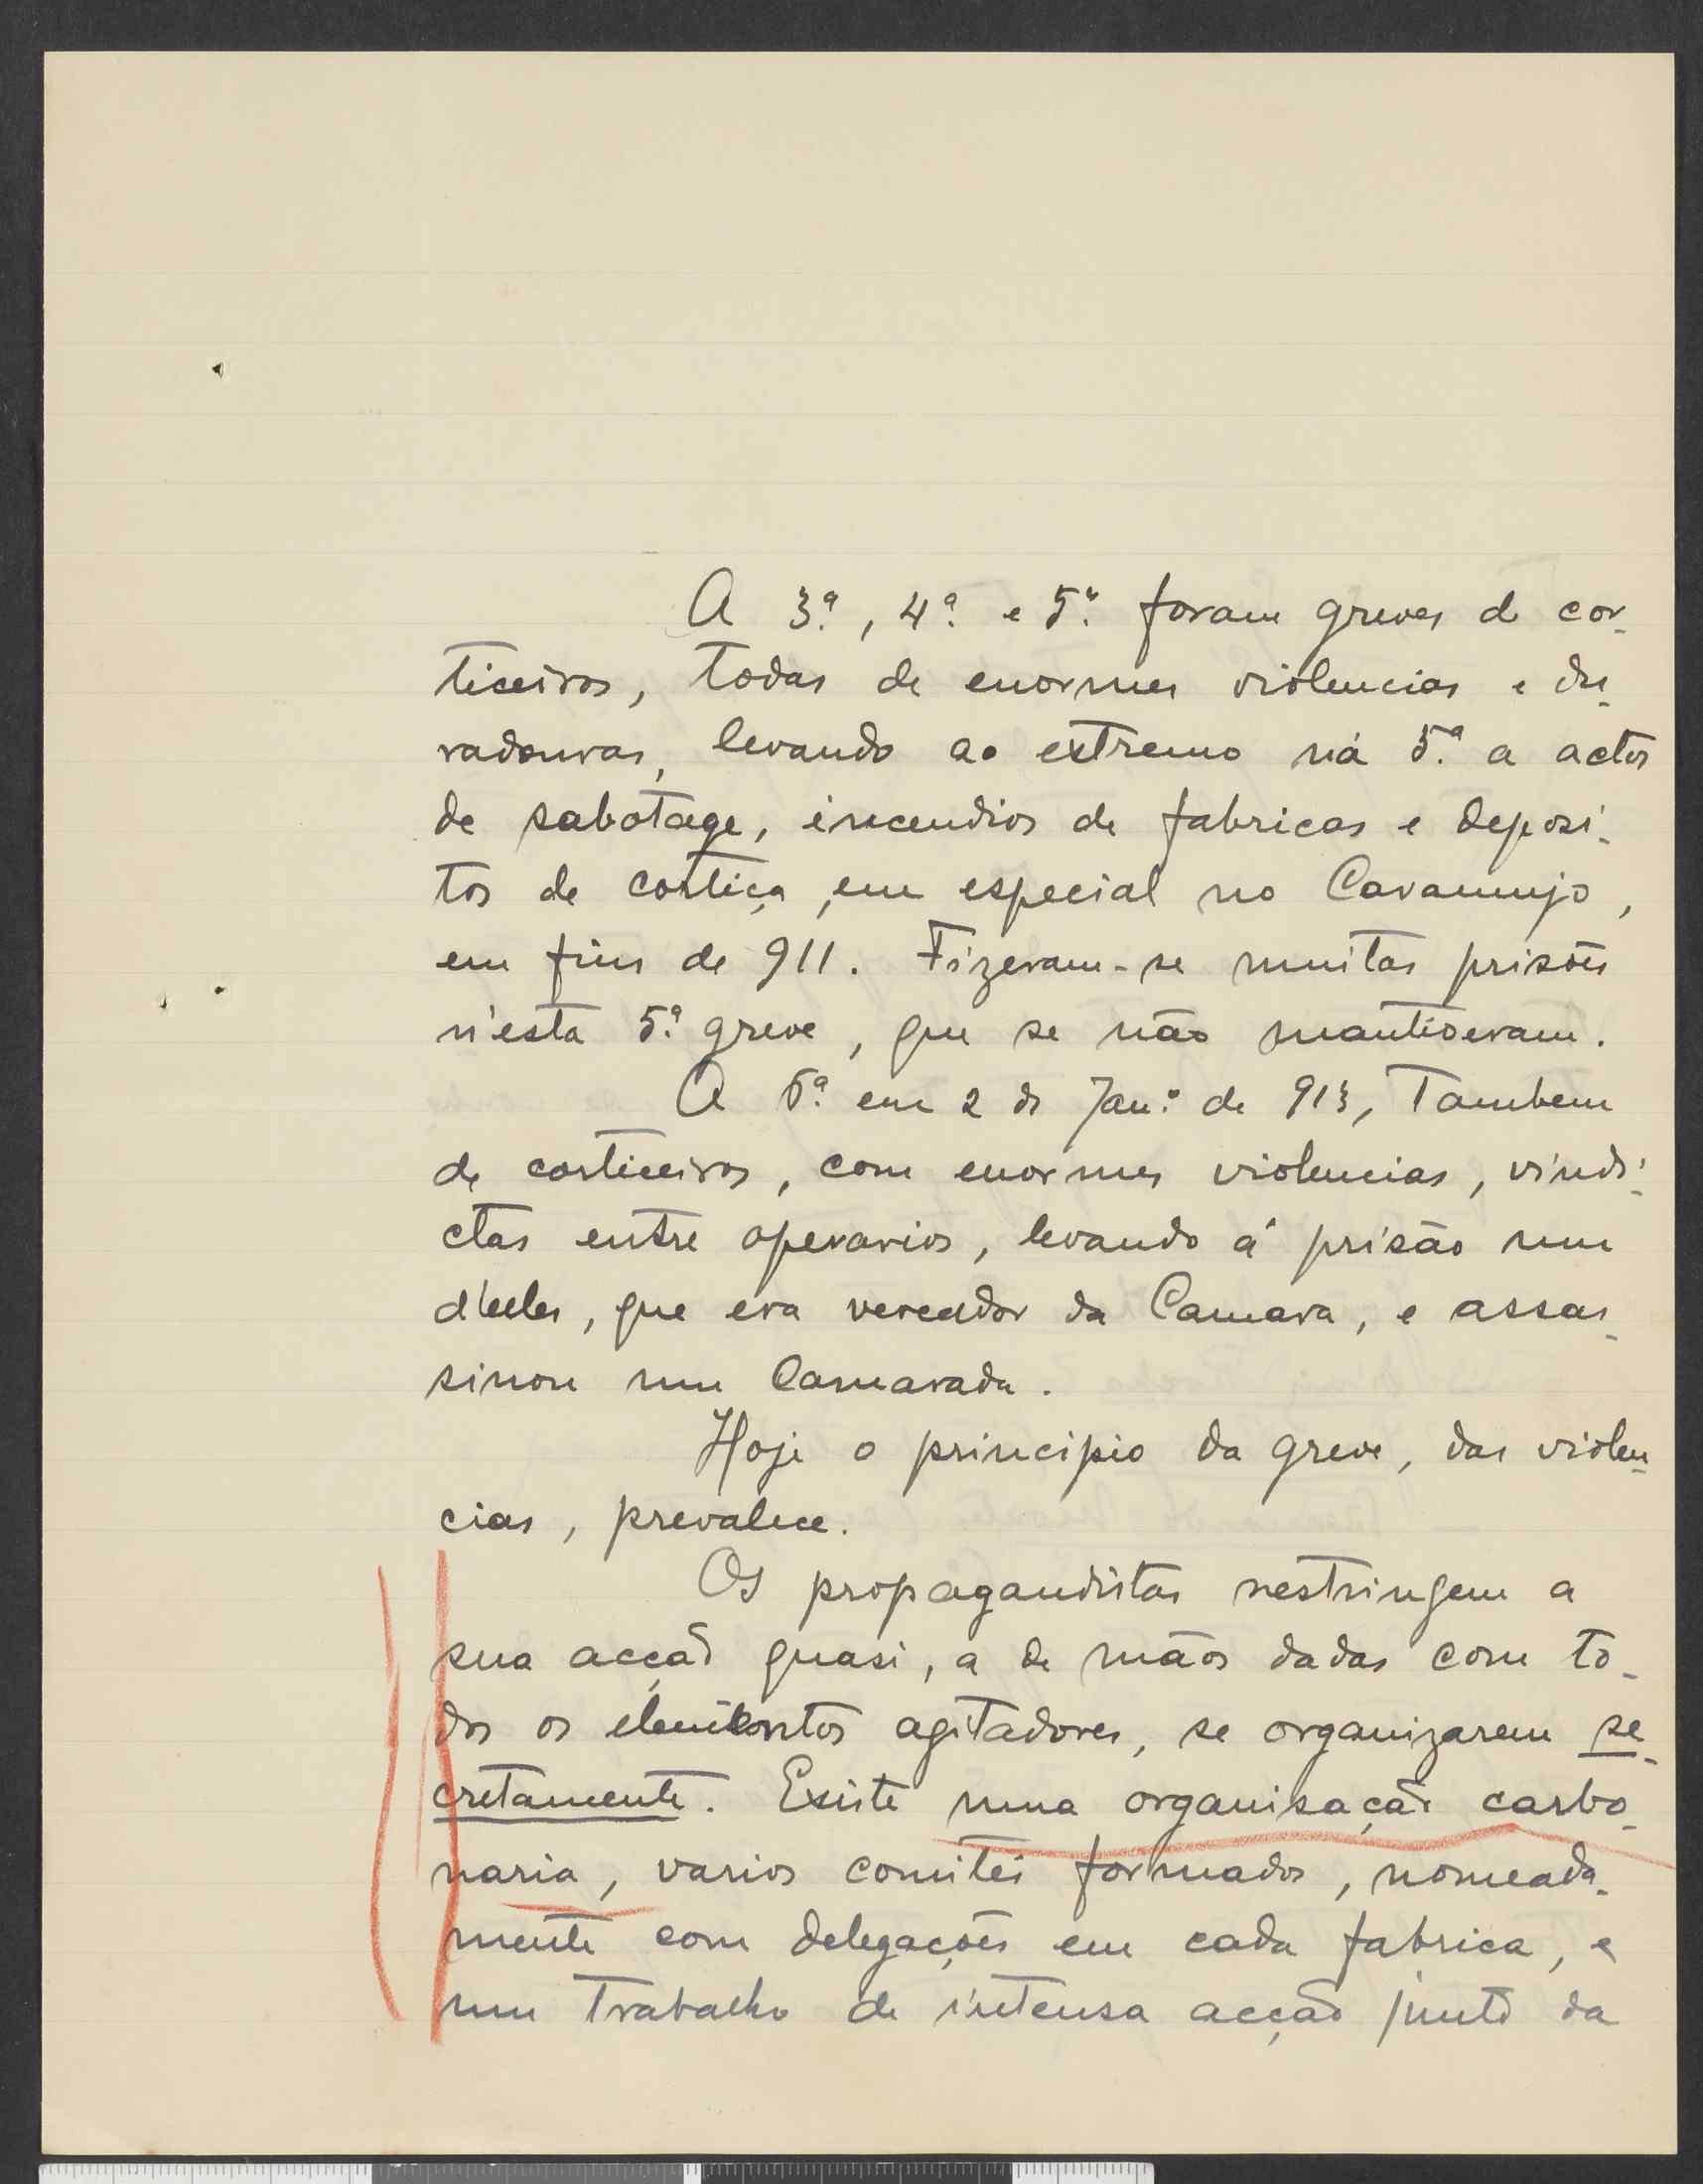 A 3.ª, 4.ª e 5.ª foram greves de cor-
ticeiros, todas de enormes violencias e du-
radouras, levando ao extremo na 5.ª a actos
de sabotage, incendios de fabricas e deposi-
tos de cortiça, em especial no Caramujo,
em fins de 911. Fizeram-se muitas prisões
n'esta 5.ª greve, que se não mantiveram.
A 6.ª em 2 de Jan.º de 913, Tambem
de corticeiros, com enormes violencias, vindi-
ctas entre operarios, levando á prisão um
d'elles, que era vereador da Camara, e assas-
sinou um Camarada.
Hoje o principio da greve, das violen-
cias, prevalece.
Os propagandistas restringem a
sua acção quasi, a de mãos dadas com to-
dos os elementos agitadores, se organizarem se-
cretamente. Existe uma organisação carbo-
naria, varios comités formados, nomeada-
mente com delegações em cada fabrica, e
um trabalho de intensa acção junto da